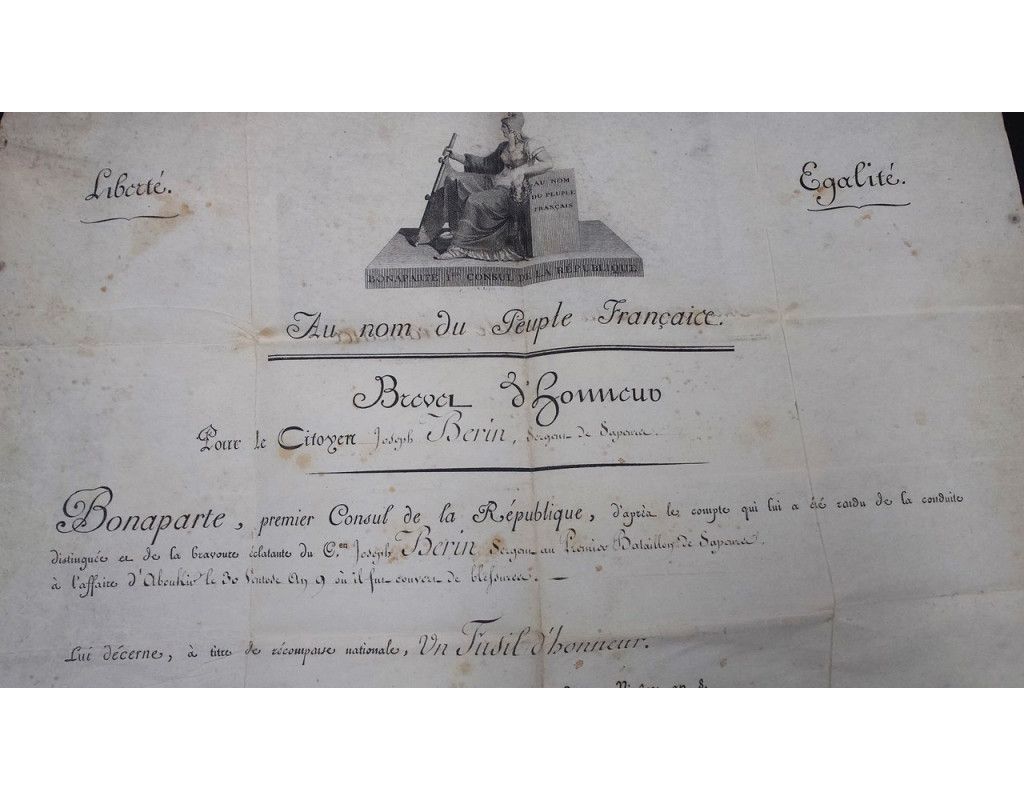 Liberté.
Egalité.
AU NOM
DU PEUPLE
FRANÇAIS
BONAPARTE 1er CONSUL DE LA RÉPUBLIQUE
Au nom du Peuple Français.
Brevet d'Honneur
Pour le Citoyen Joseph Berin, Sergent de Sapeurs.
Bonaparte, premier Consul de la République, d'après le compte qui lui a été rendu de la conduite
distinguée et de la bravoure éclatante du C.en Joseph Berin Sergent au Premier Bataillon de Sapeurs.
à l'affaire d'Aboukir le 30 Ventose An 9 où il fut couvert de blessures. —
Lui décerne, à titre de récompense nationale, Un Fusil d'honneur.